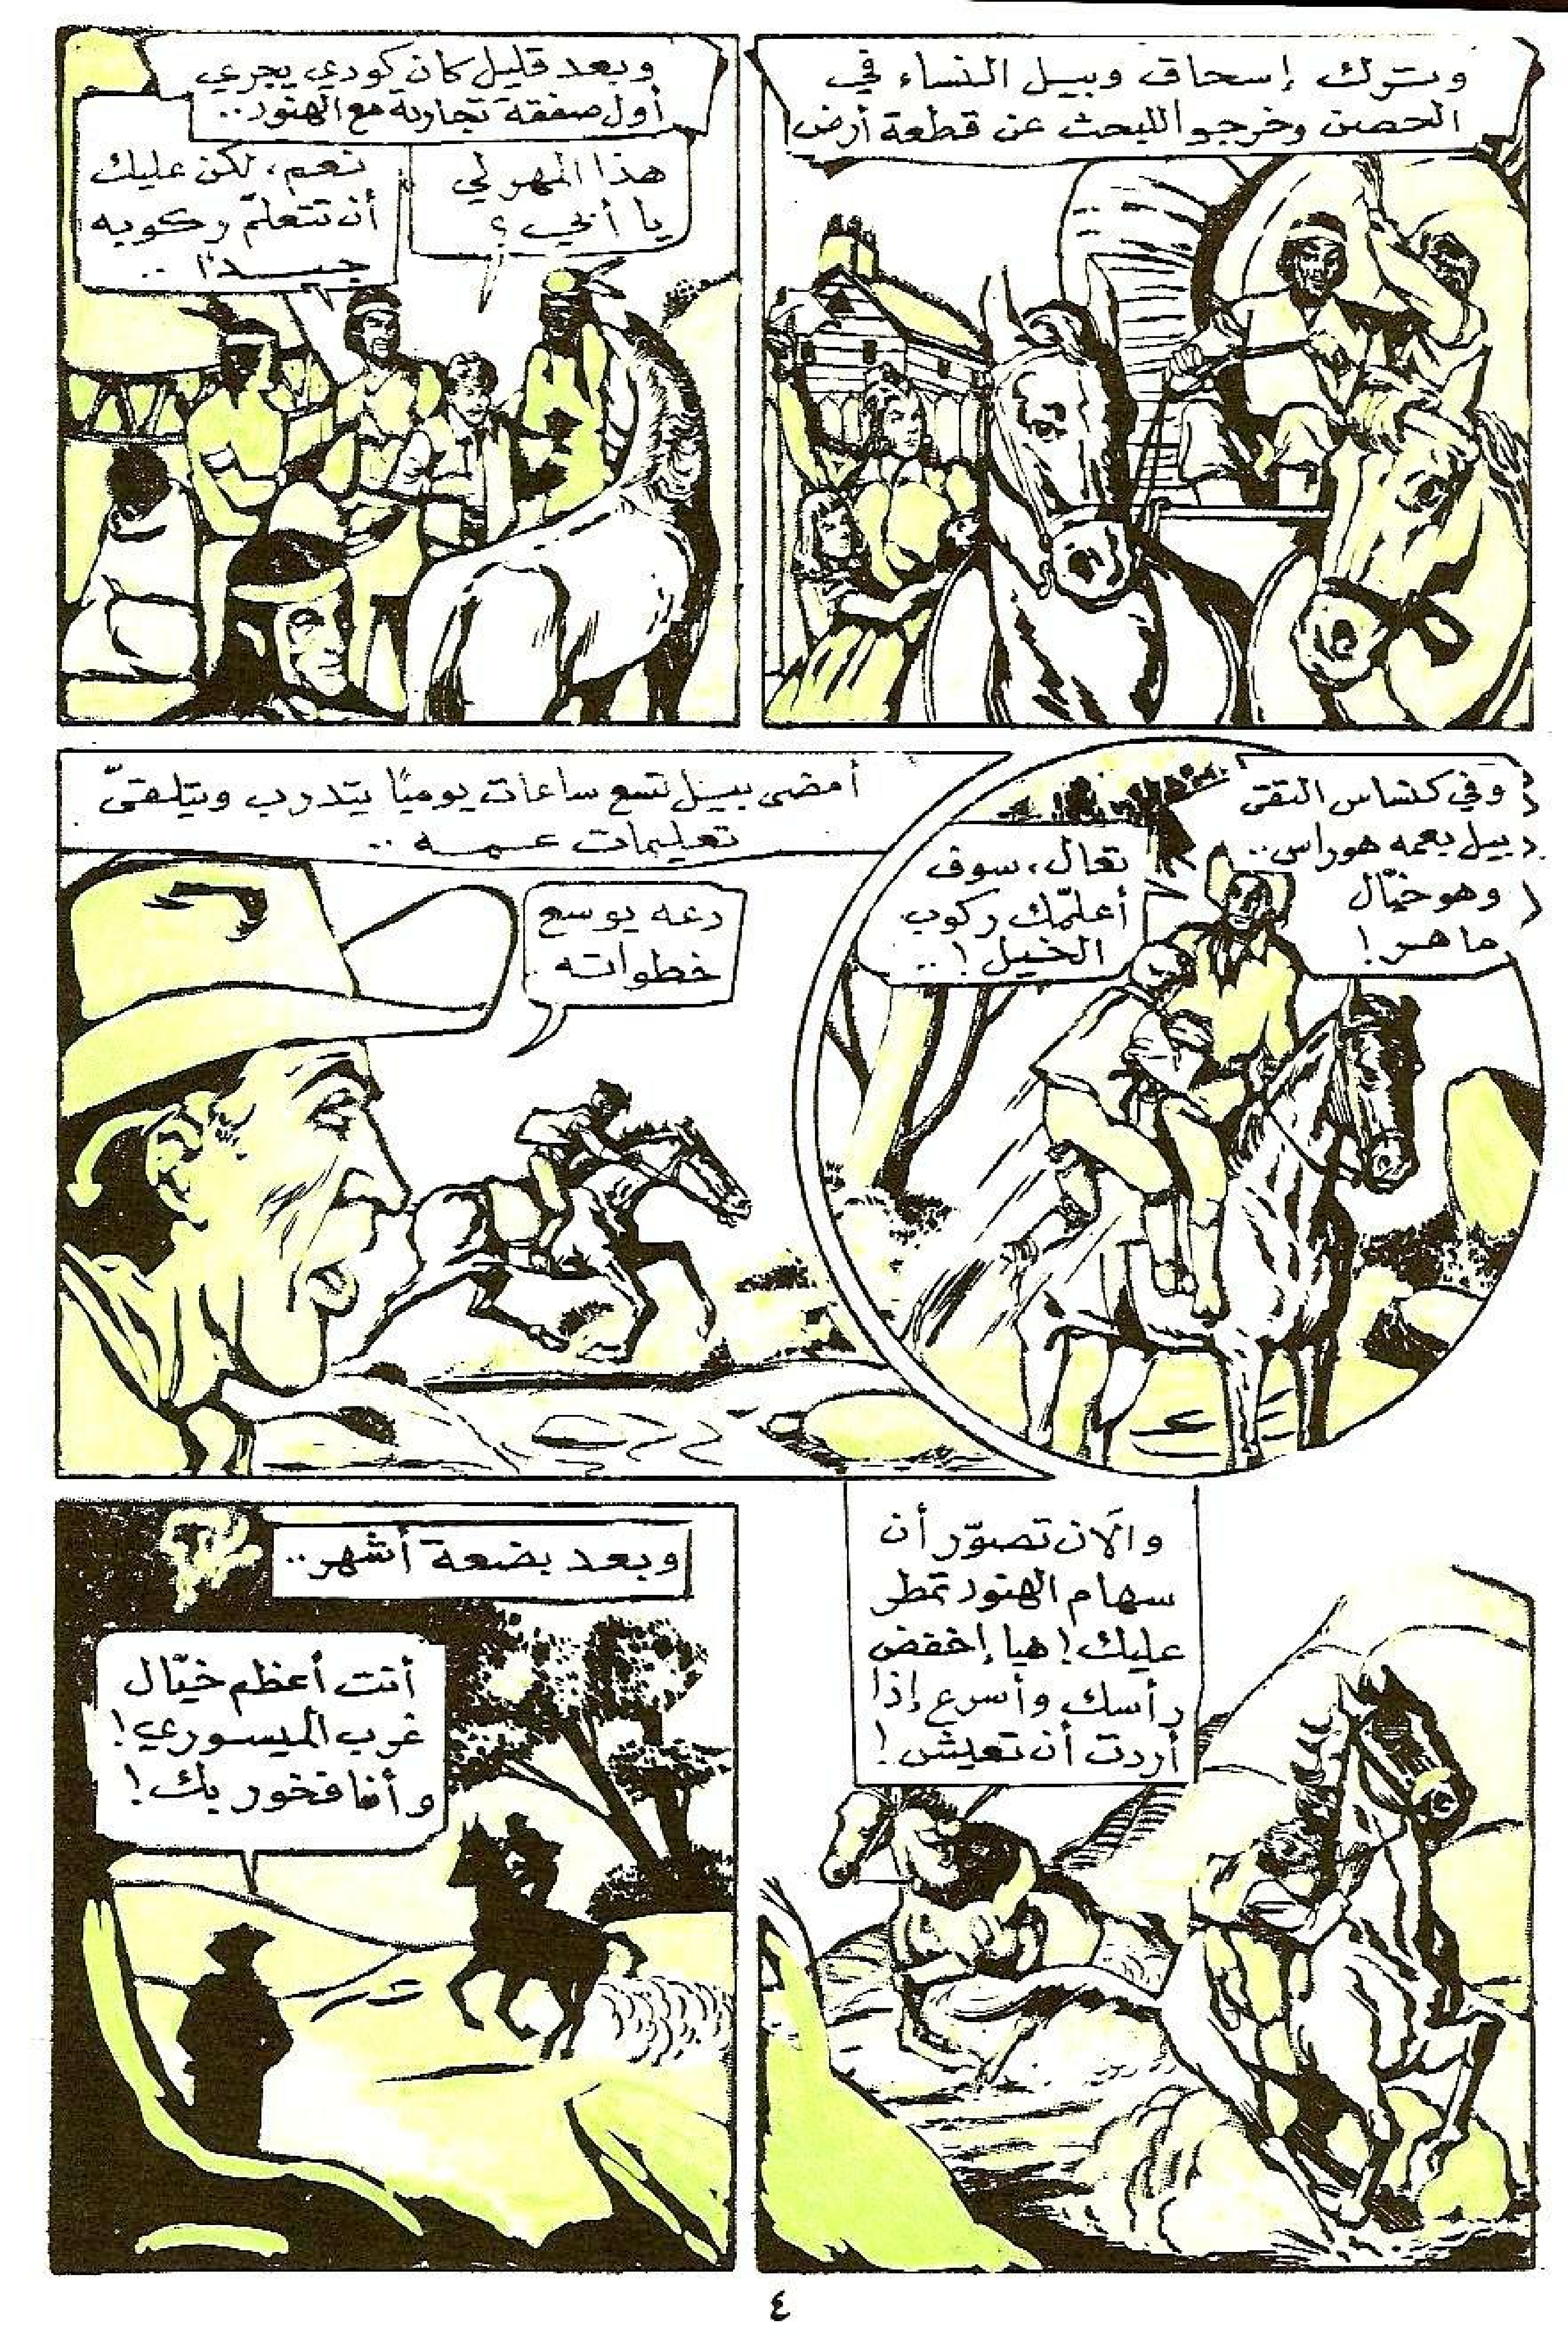 وترك إسحاق وبيل النساء في
الحصن وخرجو اللبحث عن قطعة أرض
وبعد قليل كان كودي يجري
أول صفقة تجارية مع الهنود..
هذا المهر لي
يا أبي؟
نعم، لكن عليك
أن تتعلّم ركوبه
جيدًا ..
وفي كنساس التقى
بيل بعمه هوراس..
وهو خيّال
ماهر!
تعال، سوف
أعلّمك ركوب
الخيل!..
أمضى بيل تسع ساعات يوميًا يتدرب ويتلقىّ
تعليمات عمه ..
دعه يوسع
خطواته
والآن تصوّر أن
سهام الهنود تمطر
عليك! هيا إخفض
رأسك وأسرع إذا
أردت أن تعيش!
وبعد بضعة أشهر..
أنت أعظم خيّال
غرب الميسوري!
وأنا فخور بك!
٤